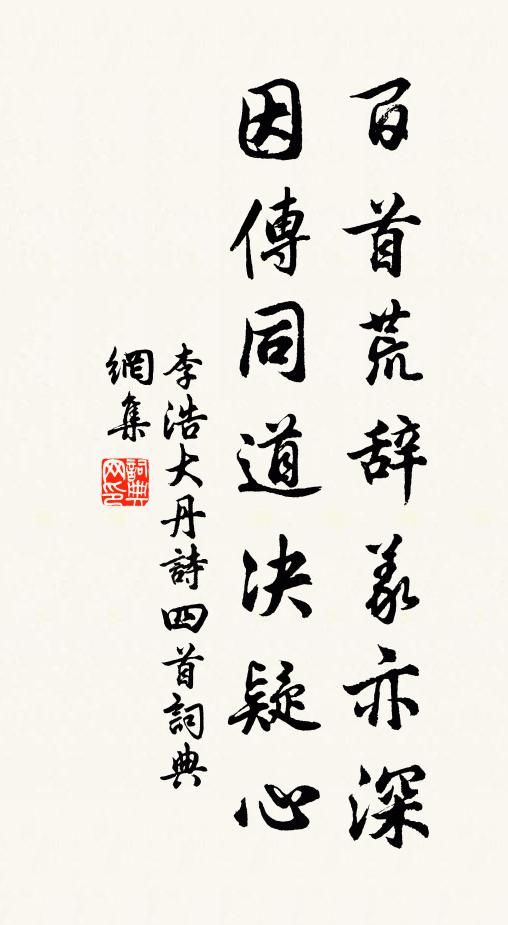 百首荒辞义亦深
因傳同道决疑心
李浩大丹詩四首詞典
網集
詞典
网印